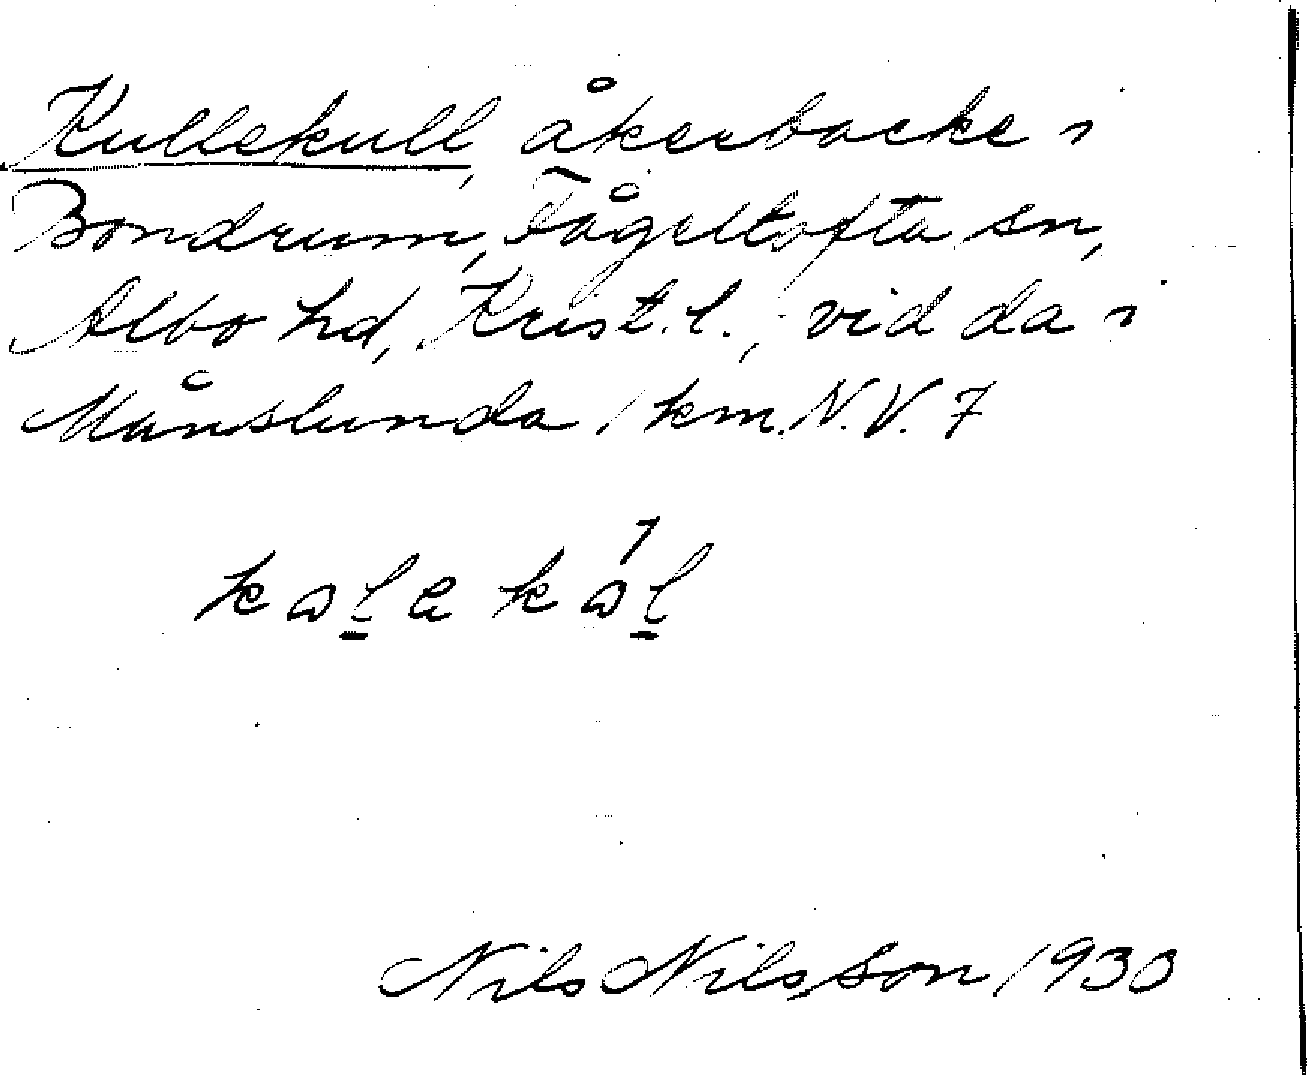 Kullekull, åkerbacke i
Bondrum, Fågeltofta sn,
Albo hd, Krist. l., vid da i
Månslunda 1 km. N.V. 7
kalekal
Nils Nilsson 1933